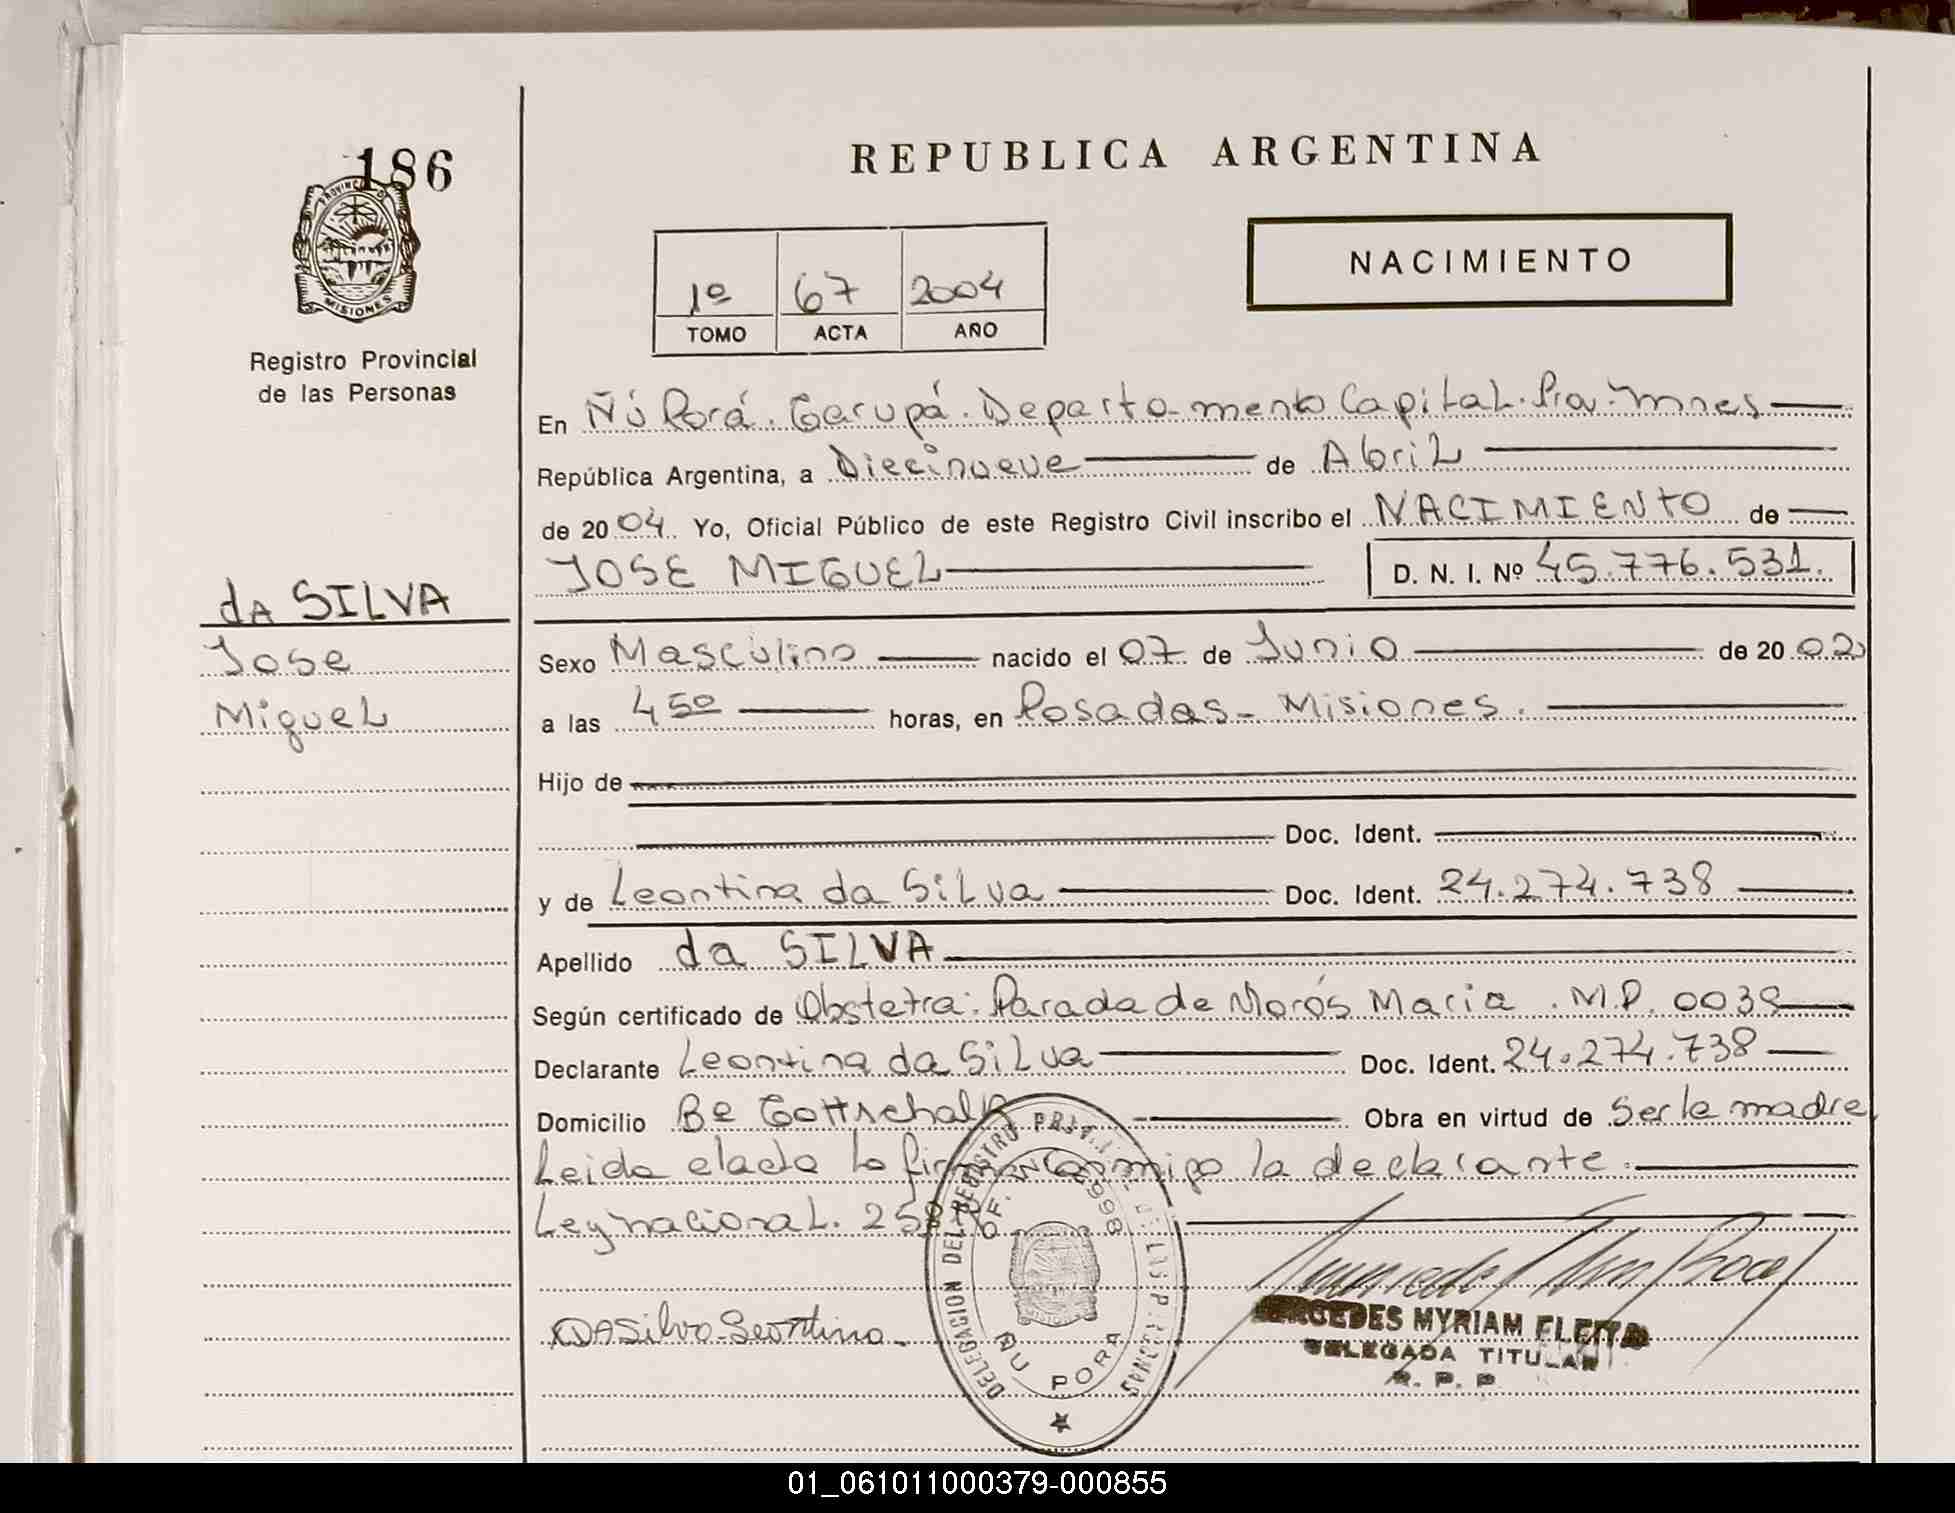 186
PROVINCIA DE
MISIONES
Registro Provincial
de las Personas
dA SILVA
Jose
Miguel
REPUBLICA ARGENTINA
1º 67 2004
TOMO ACTA AÑO
NACIMIENTO
En Ñú Porá. Garupá. Departa-mento Capital. Prov. Mnes
República Argentina, a Diecinueve de Abril
de 2004 Yo, Oficial Público de este Registro Civil inscribo el NACIMIENTO de
JOSE MIGUEL D. N. I. Nº 45.776.531.
Sexo Masculino nacido el 07 de Junio de 2002
a las 4 50 horas, en Posadas - Misiones.
Hijo de
Doc. Ident.
y de Leontina da Silva Doc. Ident. 24.274.738
Apellido da SILVA
Según certificado de Obstetra: Parada de Morós Maria. M.P. 0039
Declarante Leontina da Silva Doc. Ident. 24.274.738
Domicilio Bº Gottschalk Obra en virtud de Ser la madre
Leida el acta la firma conmigo la declarante.
Ley nacional.
DELEGACION DEL REGISTRO DE LAS PERSONAS
ÑU PORA
DASilva Leontina
MERCEDES MYRIAM FLEITA
DELEGADA TITULAR
R. P. P.
01_061011000379-000855